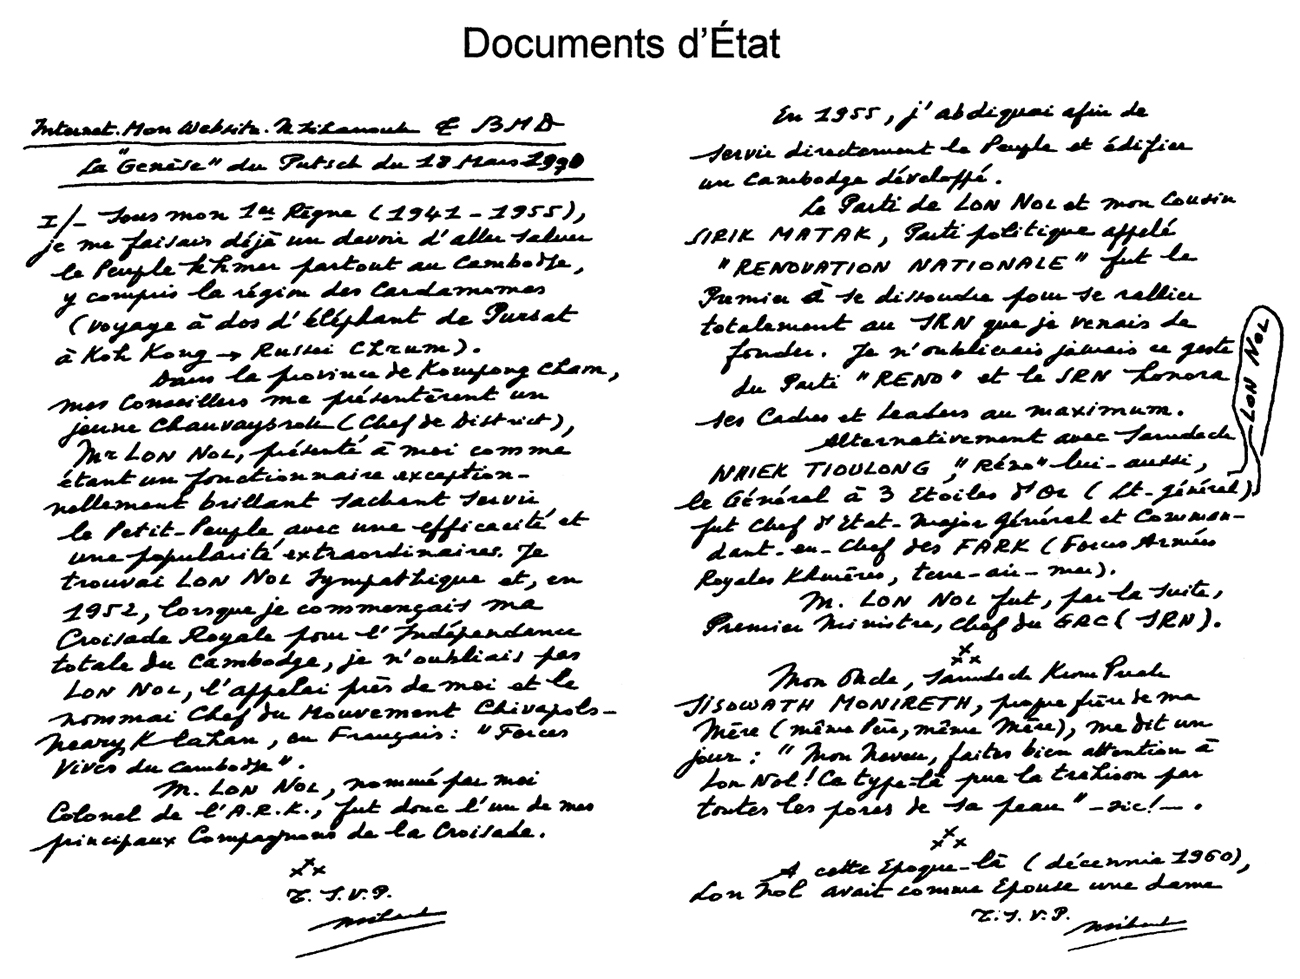 Documents d'État
Internet. Mon Website. N. Sihanouk & BMD
La "Genèse" du Putsch du 18 Mars 1970
I/- Sous mon 1er Règne (1941-1955),
je me faisais déjà un devoir d'aller saluer
le Peuple khmer partout au Cambodge,
y compris la région des Cardamomes
(voyage à dos d'éléphant de Pursat
à Koh Kong → Russei Chrum).
Dans la province de Kompong Cham,
mes Conseillers me présentèrent un
jeune Chauvaysrok (Chef de District),
Mr LON NOL, présenté à moi comme
étant un fonctionnaire exception-
nellement brillant sachant servir
le Petit-Peuple avec une efficacité et
une popularité extraordinaires. Je
trouvai LON NOL sympathique et, en
1952, lorsque je commençais ma
Croisade Royale pour l'Indépendance
totale du Cambodge, je n'oubliais pas
LON NOL, l'appelai près de moi et le
nommai Chef du Mouvement Chivapols-
Neary Klahan, en Français : "Forces
Vives du Cambodge".
M. LON NOL, nommé par moi
Colonel de l'A.R.K., fut donc l'un de mes
principaux Compagnons de la Croisade.
x x x
T. S. V. P.
En 1955, j'abdiquai afin de
servir directement le Peuple et édifier
un Cambodge développé.
Le Parti de LON NOL et mon Cousin
SIRIK MATAK, Parti politique appelé
"RENOVATION NATIONALE" fut le
Premier à se dissoudre pour se rallier
totalement au SRN que je venais de
fonder. Je n'oublierais jamais ce geste
du Parti "RENO" et le SRN honora
ses Cadres et Leaders au maximum.
Alternativement avec Samdech
NHIEK TIOULONG, "Réno" lui-aussi,
le Général à 3 Etoiles d'Or (Lt-général) LON NOL
fut Chef d'Etat-Major Général et Comman-
dant-en-Chef des FARK (Forces Armées
Royales Khmères, terre-air-mer).
M. LON NOL fut, par la suite,
Premier Ministre, Chef du GRC (SRN).
x x x
Mon Oncle, Samdech Krom Preah
SISOWATH MONIRETH, propre frère de ma
Mère (même Père, même Mère), me dit un
jour : "Mon Neveu, faites bien attention à
Lon Nol! Ce type-là pue la trahison par
toutes les pores de sa peau" -sic!-.
x x x
A cette Epoque-là (décennie 1960),
Lon Nol avait comme Epouse une dame
T. S. V. P.